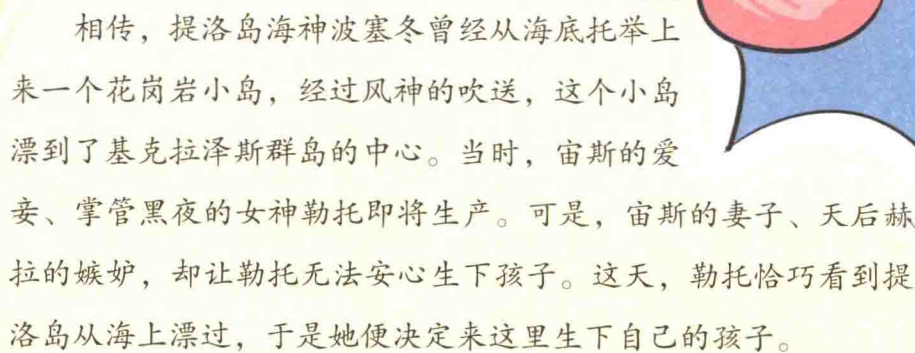 相传，提洛岛海神波塞冬曾经从海底托举上
来一个花岗岩小岛，经过风神的吹送，这个小岛
漂到了基克拉泽斯群岛的中心。当时，宙斯的爱
妾、掌管黑夜的女神勒托即将生产。可是，宙斯的妻子、天后赫
拉的嫉妒，却让勒托无法安心生下孩子。这天，勒托恰巧看到提
洛岛从海上漂过，于是她便决定来这里生下自己的孩子。